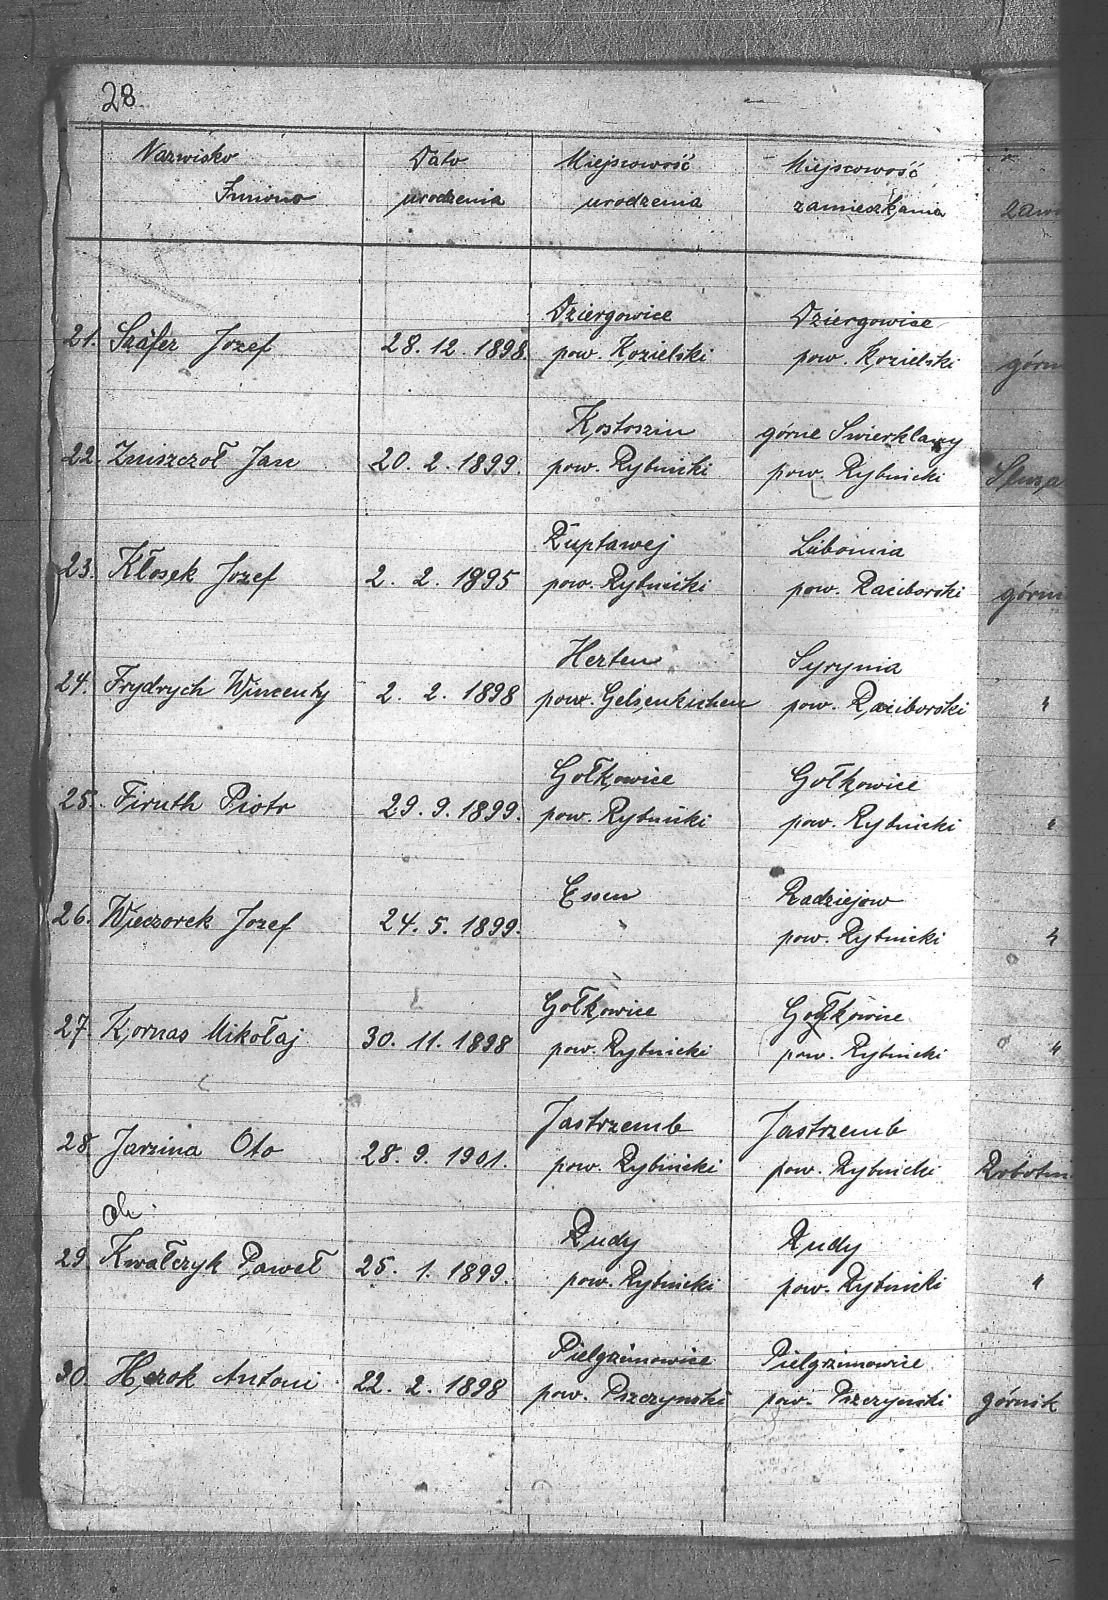 28
Nazwisko Data Miejscowość Miejscowość
Imiono urodzenia urodzenia zamieszkania
Dziergowice Dziergowice
21. Szäfer Jozef 28.12.1898. pow. Kozielski pow. Kozielski górn
Kostoszin górne Swierklany
22. Zniszczoł Jan 20.2.1899. pow. Rybnicki pow. Rybnicki
Ruptawej Lubomia
23. Kłosek Jozef 2.2.1895 pow. Rybnicki pow. Raciborski górni
Herten Syrynia
24. Frydrych Wincenty 2.2.1898 pow. Gelsenkichen pow. Raciborski "
Gołkowice Gołkowice
25. Firuth Piotr 29.9.1899. pow. Rybnicki pow. Rybnicki "
Essen Radziejow
26. Wieczorek Jozef 24.5.1899. pow. Rybnicki "
Gołkowice Gołkowice
27. Kornas Mikołaj 30.11.1898 pow. Rybnicki pow. Rybnicki "
Jastrzemb Jastrzemb
28. Jarzina Oto 28.9.1901. pow. Rybnicki pow. Rybnicki Robotni
Rudy Rudy
29. Kwałczyk Paweł 25.1.1899. pow. Rybnicki pow. Rybnicki "
Pielgrzimowice Pielgrzimowice
30. Herok Antoni 22.2.1898 pow. Pszczynski pow. Pszczynski górnik